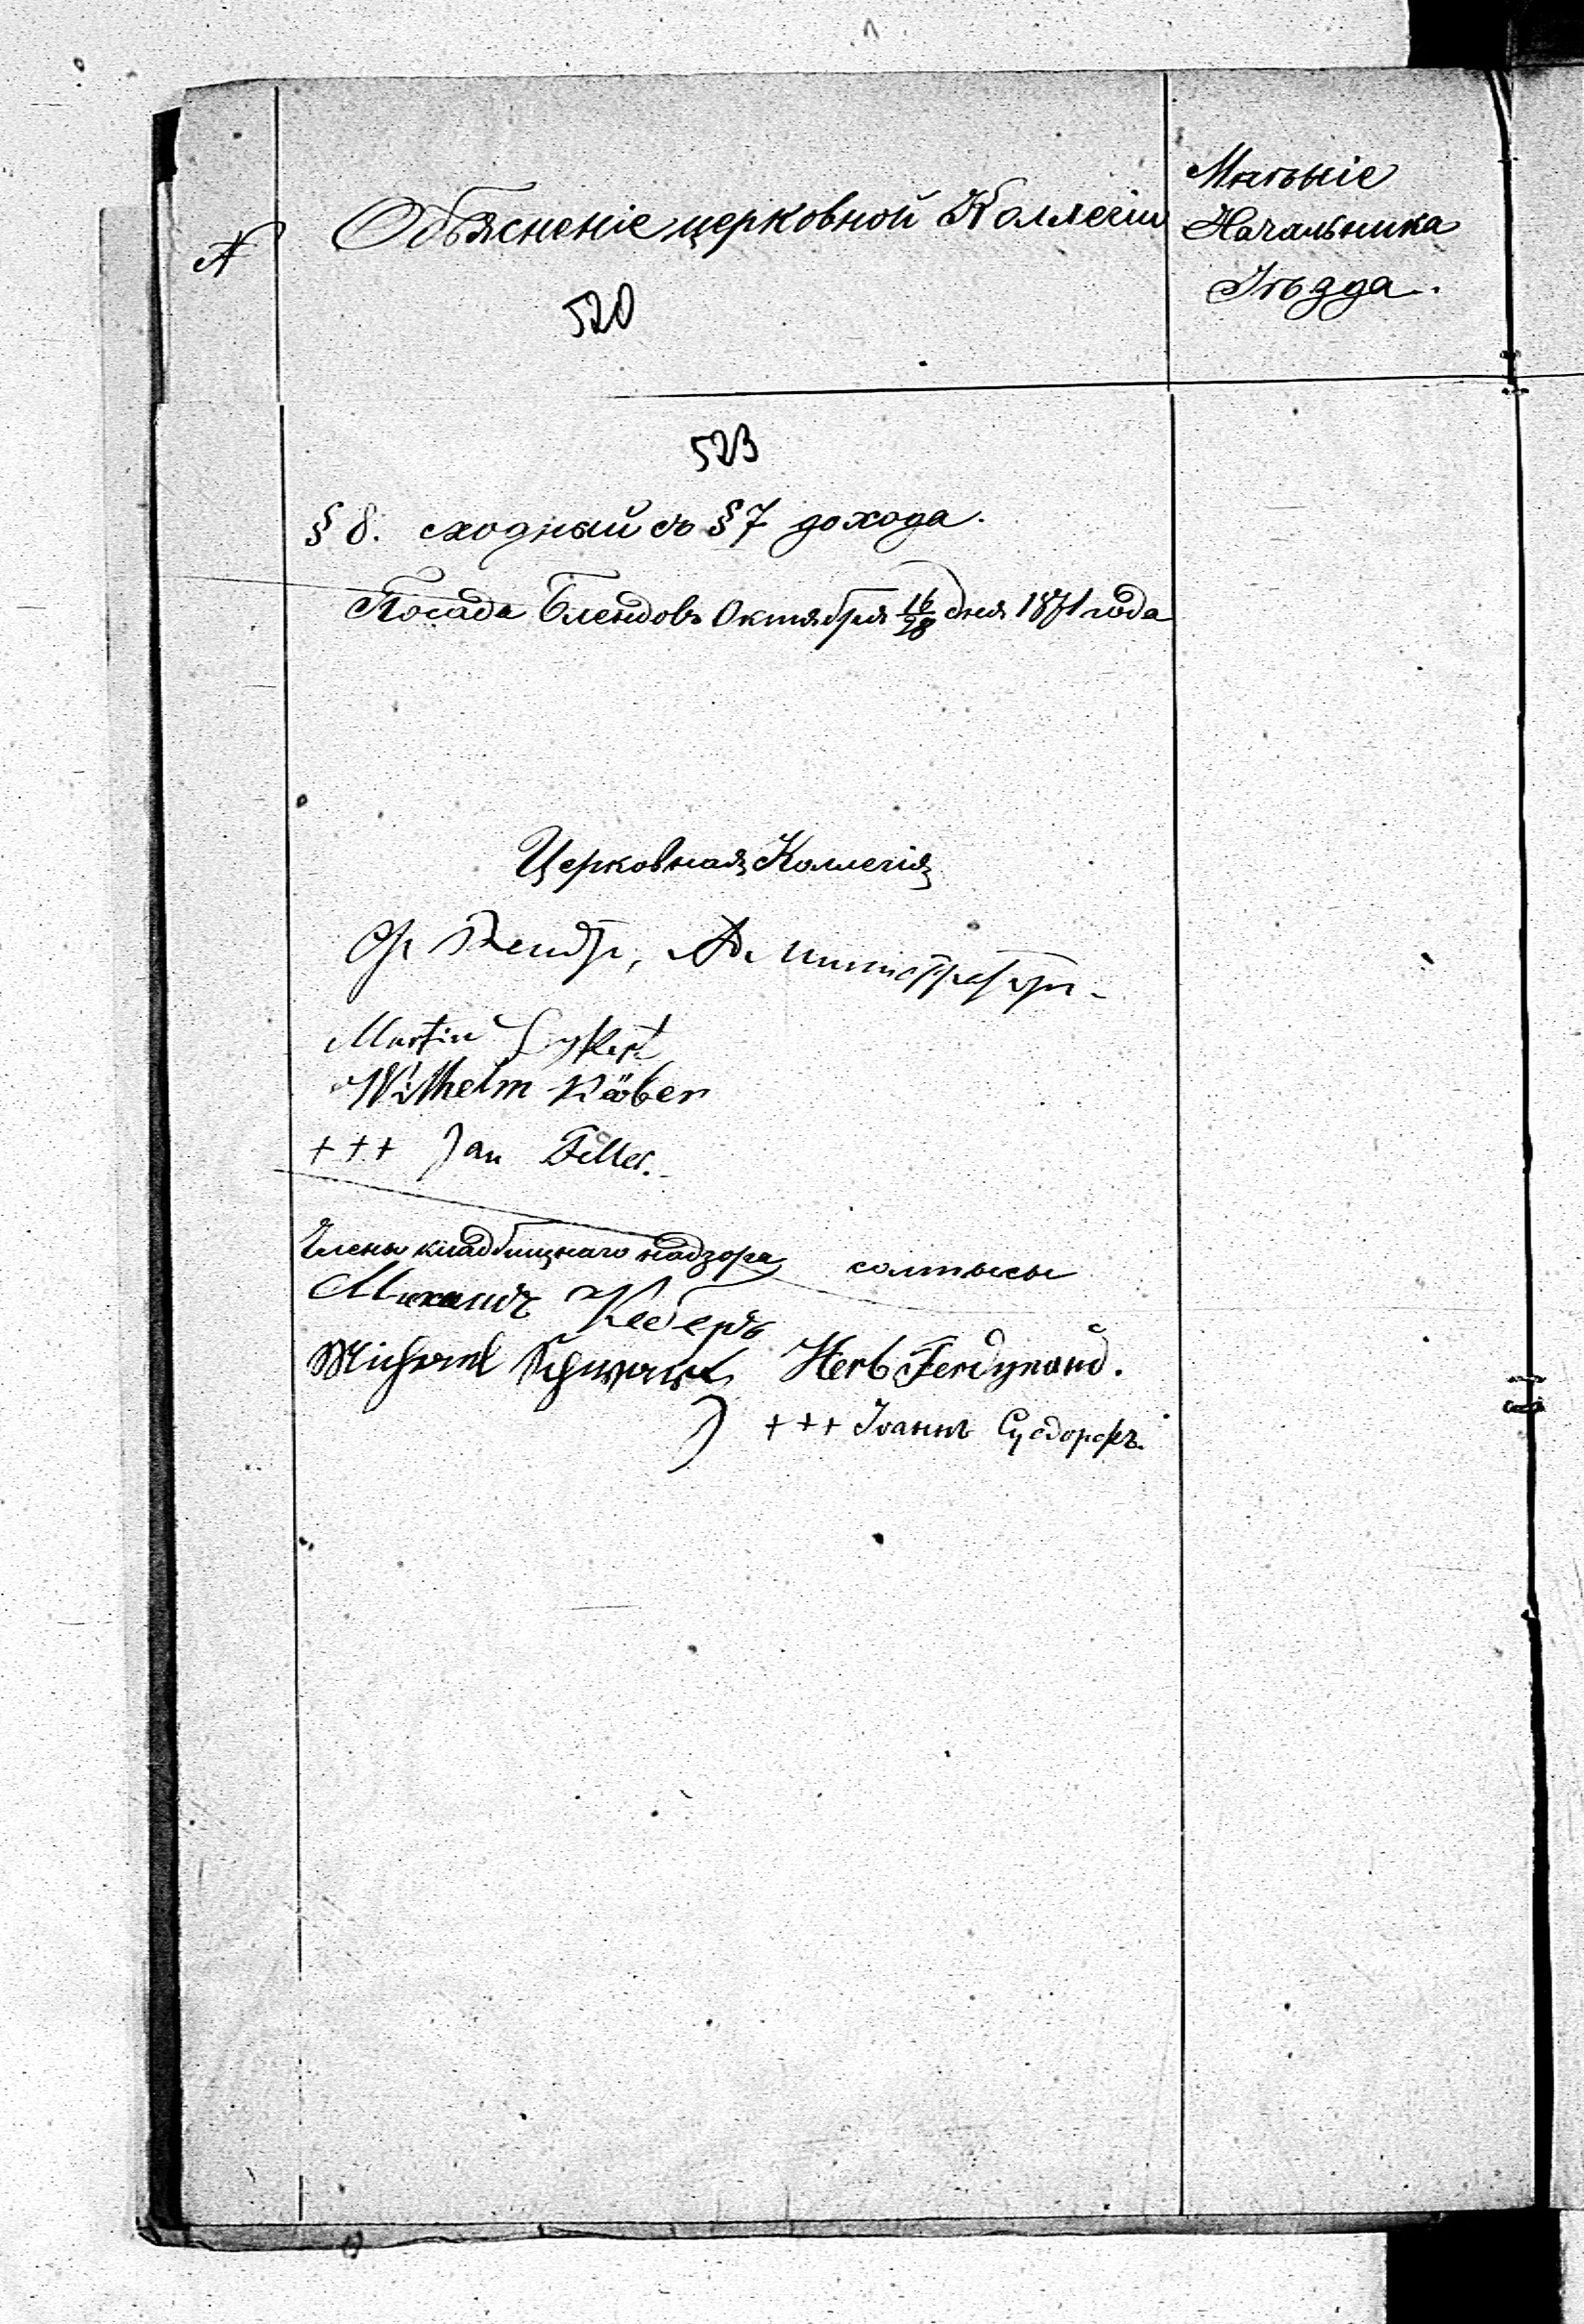 №
Объясненіе церковной Коллегіи
Мнѣніе
Начальника
Уѣзда.
520
523
§ 8. сходный съ § 7 дохода.
Посада Блендовъ Октября 16/28 дня 1871 года
Церковная Коллегія
Администраторъ
Martin
Wilhelm Köber
+++ Jan Feller.
Члены кладбищнаго надзора
солтысы
Михаилъ Кеберъ
Michael Schwartz
Herb Ferdynand.
+++ Іоаннъ Сусдорфъ.